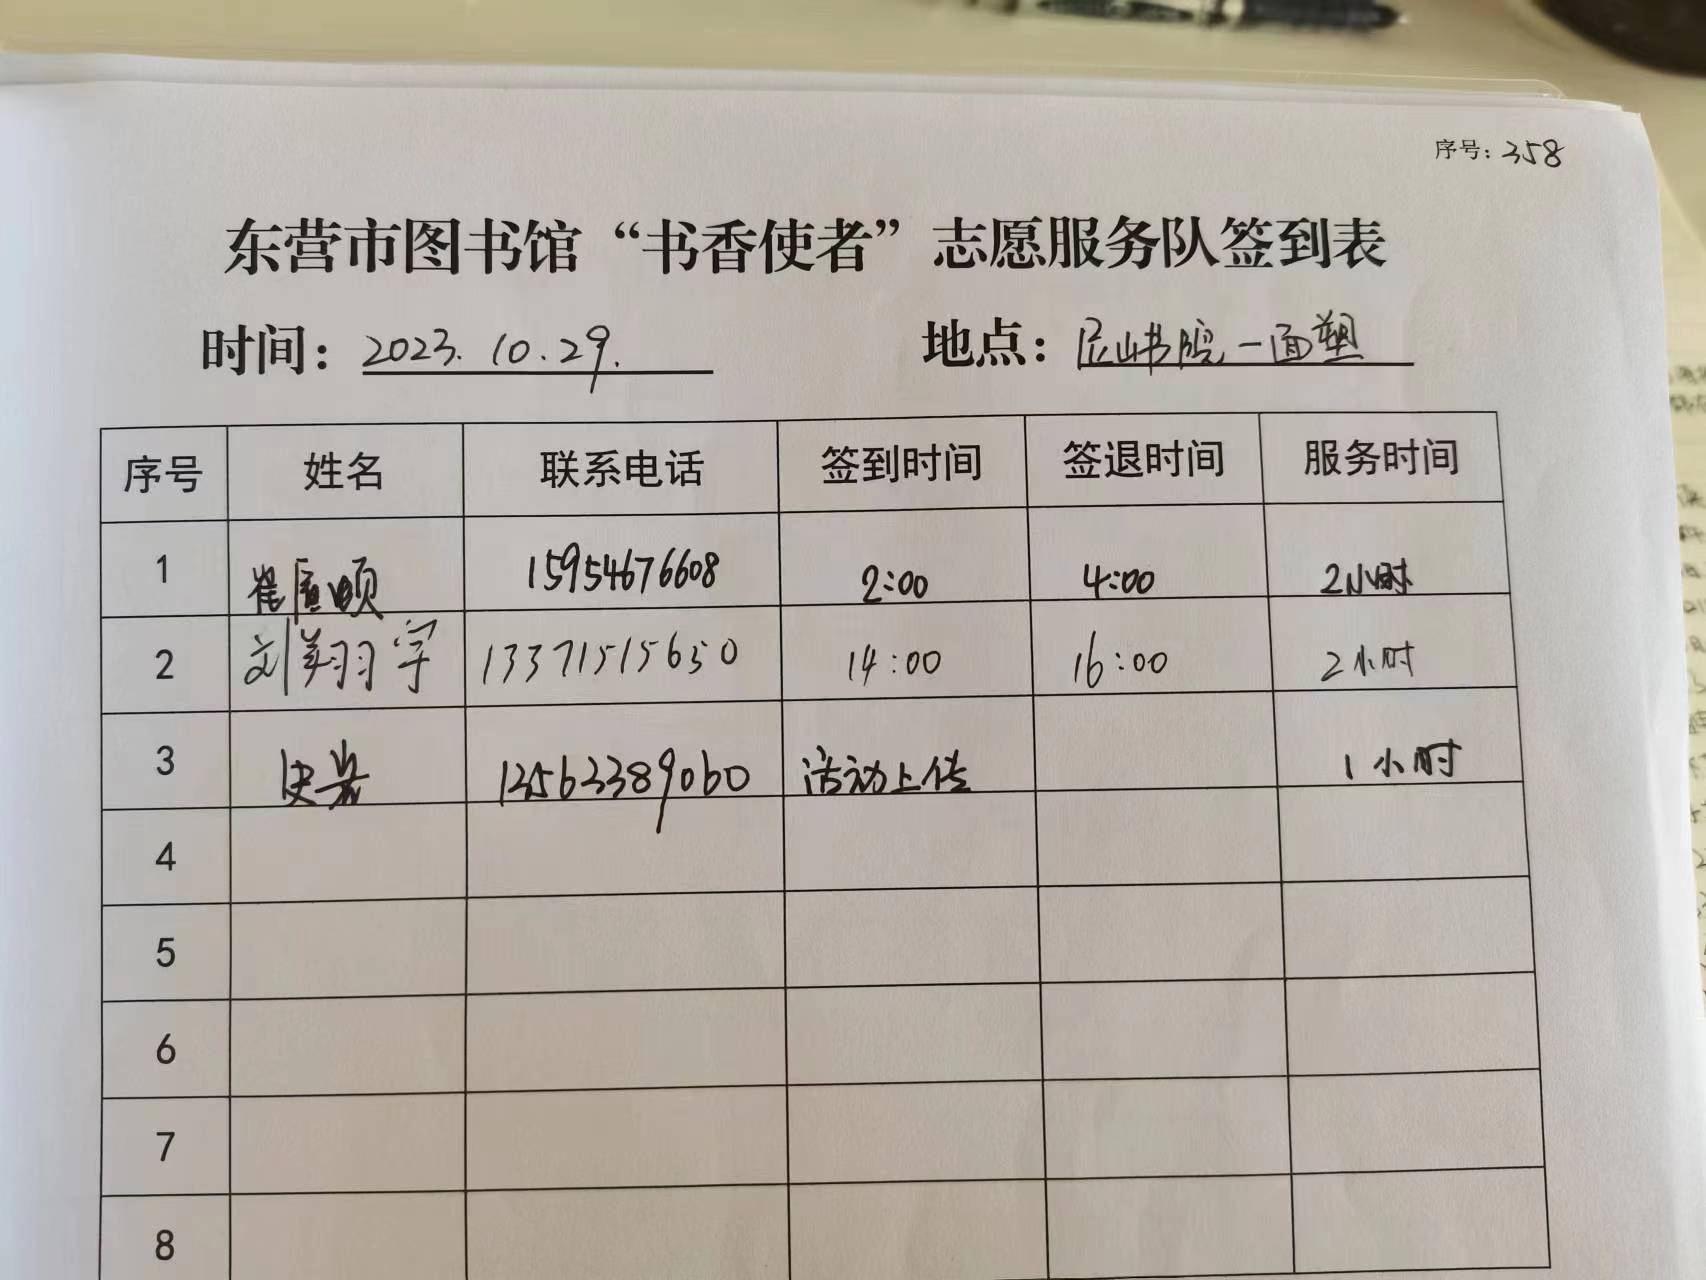 序号：358
东营市图书馆“书香使者”志愿服务队签到表
时间：2023.10.29. 地点：尼山书院—面塑
序号 姓名 联系电话 签到时间 签退时间 服务时间
1 崔 15954676608 2:00 4:00 2小时
2 刘翔宇 13371515650 14:00 16:00 2小时
3 13562389060 活动上传 1小时
4
5
6
7
8